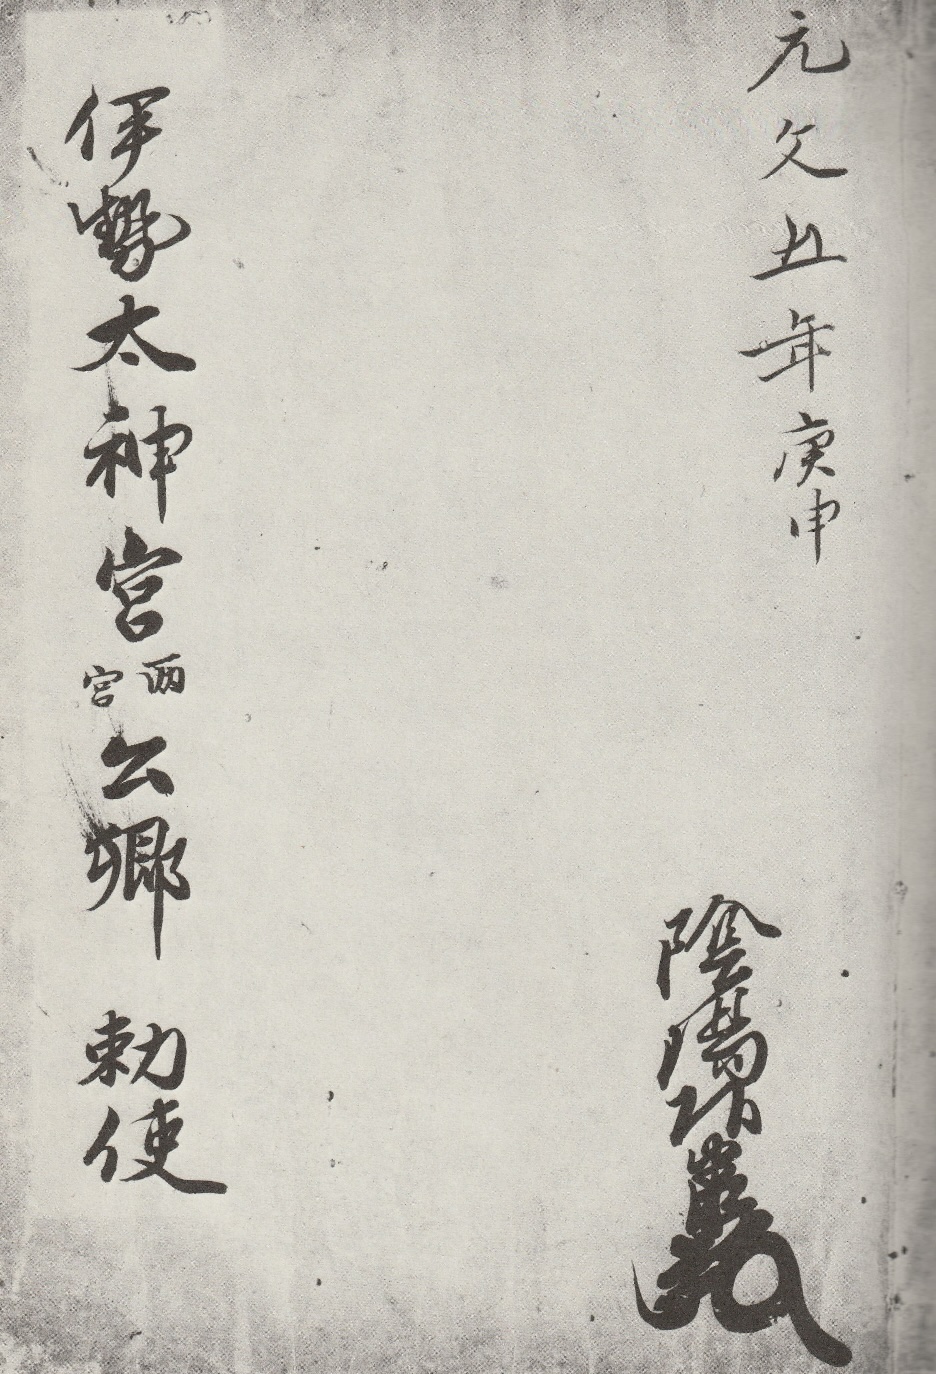 元文五年庚申
陰陽師
伊勢太神宮両宮公卿 勅使